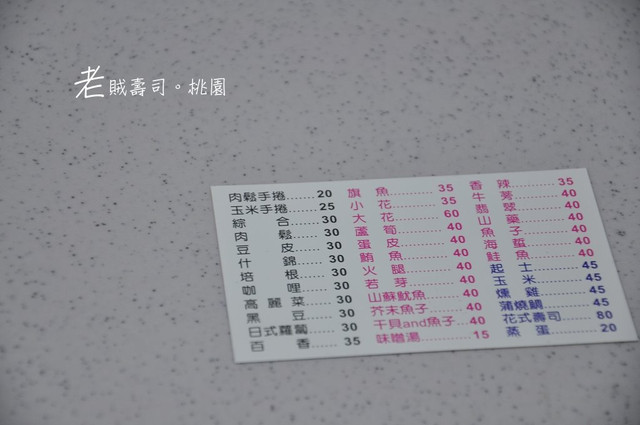 老賊壽司。桃園
肉鬆手捲......20
玉米手捲......25
綜合......30
肉鬆......30
豆皮......30
什錦......30
培根......30
咖哩......30
高麗菜......30
黑豆......30
日式蘿蔔......30
百香......35
旗魚......35
小花......35
大花......60
蘆筍......40
蛋皮......40
鮪魚......40
火腿......40
若芽......40
山蘇魷魚......40
芥末魚子......40
干貝and魚子...40
味噌湯......15
香辣......35
牛蒡......40
翡翠......40
山藥......40
魚子......40
海蜇......40
鮭魚......40
起士......45
玉米......45
燻雞......45
蒲燒鯛......45
花式壽司......80
蒸蛋......20